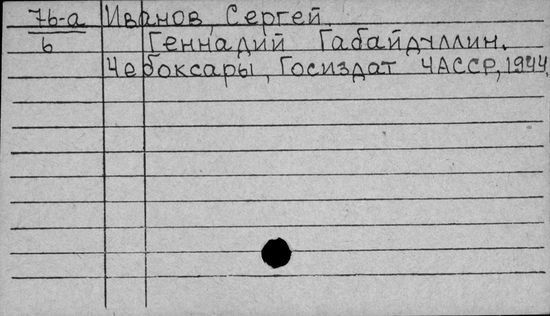 7б-а Иванов, Сергей.
б Геннадий Габайдуллин.
Чебоксары, Госиздат ЧАССР, 1944.